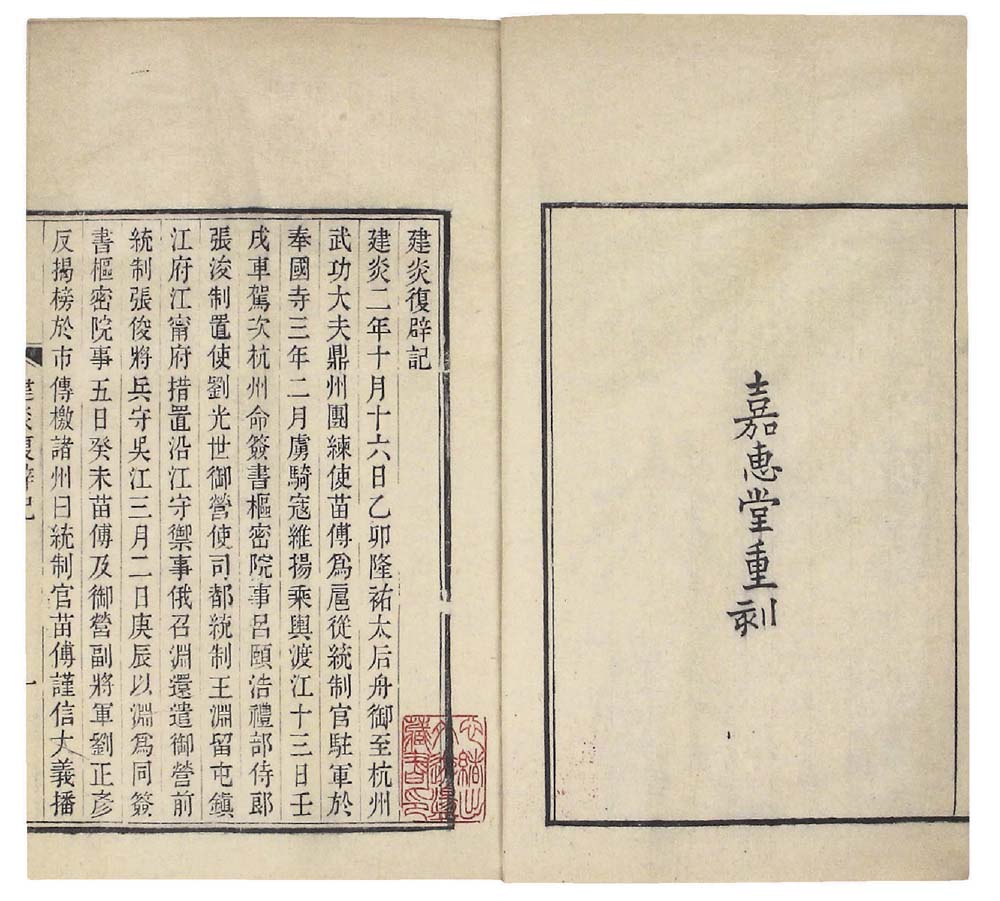 嘉惠堂重刻
建炎復辟記
建炎二年十月十六日乙卯隆祐太后舟御至杭州
武功大夫鼎州團練使苗傅爲扈從統制官駐軍於
奉國寺三年二月虜騎寇維揚乘輿渡江十三日壬
戌車駕次杭州命簽書樞密院事呂頤浩禮部侍郎
張浚制置使劉光世御營使司都統制王淵留屯鎮
江府江甯府措置沿江守禦事俄召淵還遣御營前
統制張俊將兵守吳江三月二日庚辰以淵爲同簽
書樞密院事五日癸未苗傅及御營副將軍劉正彥
反揭榜於市傳檄諸州曰統制官苗傅謹信大義播
建炎復辟記
一